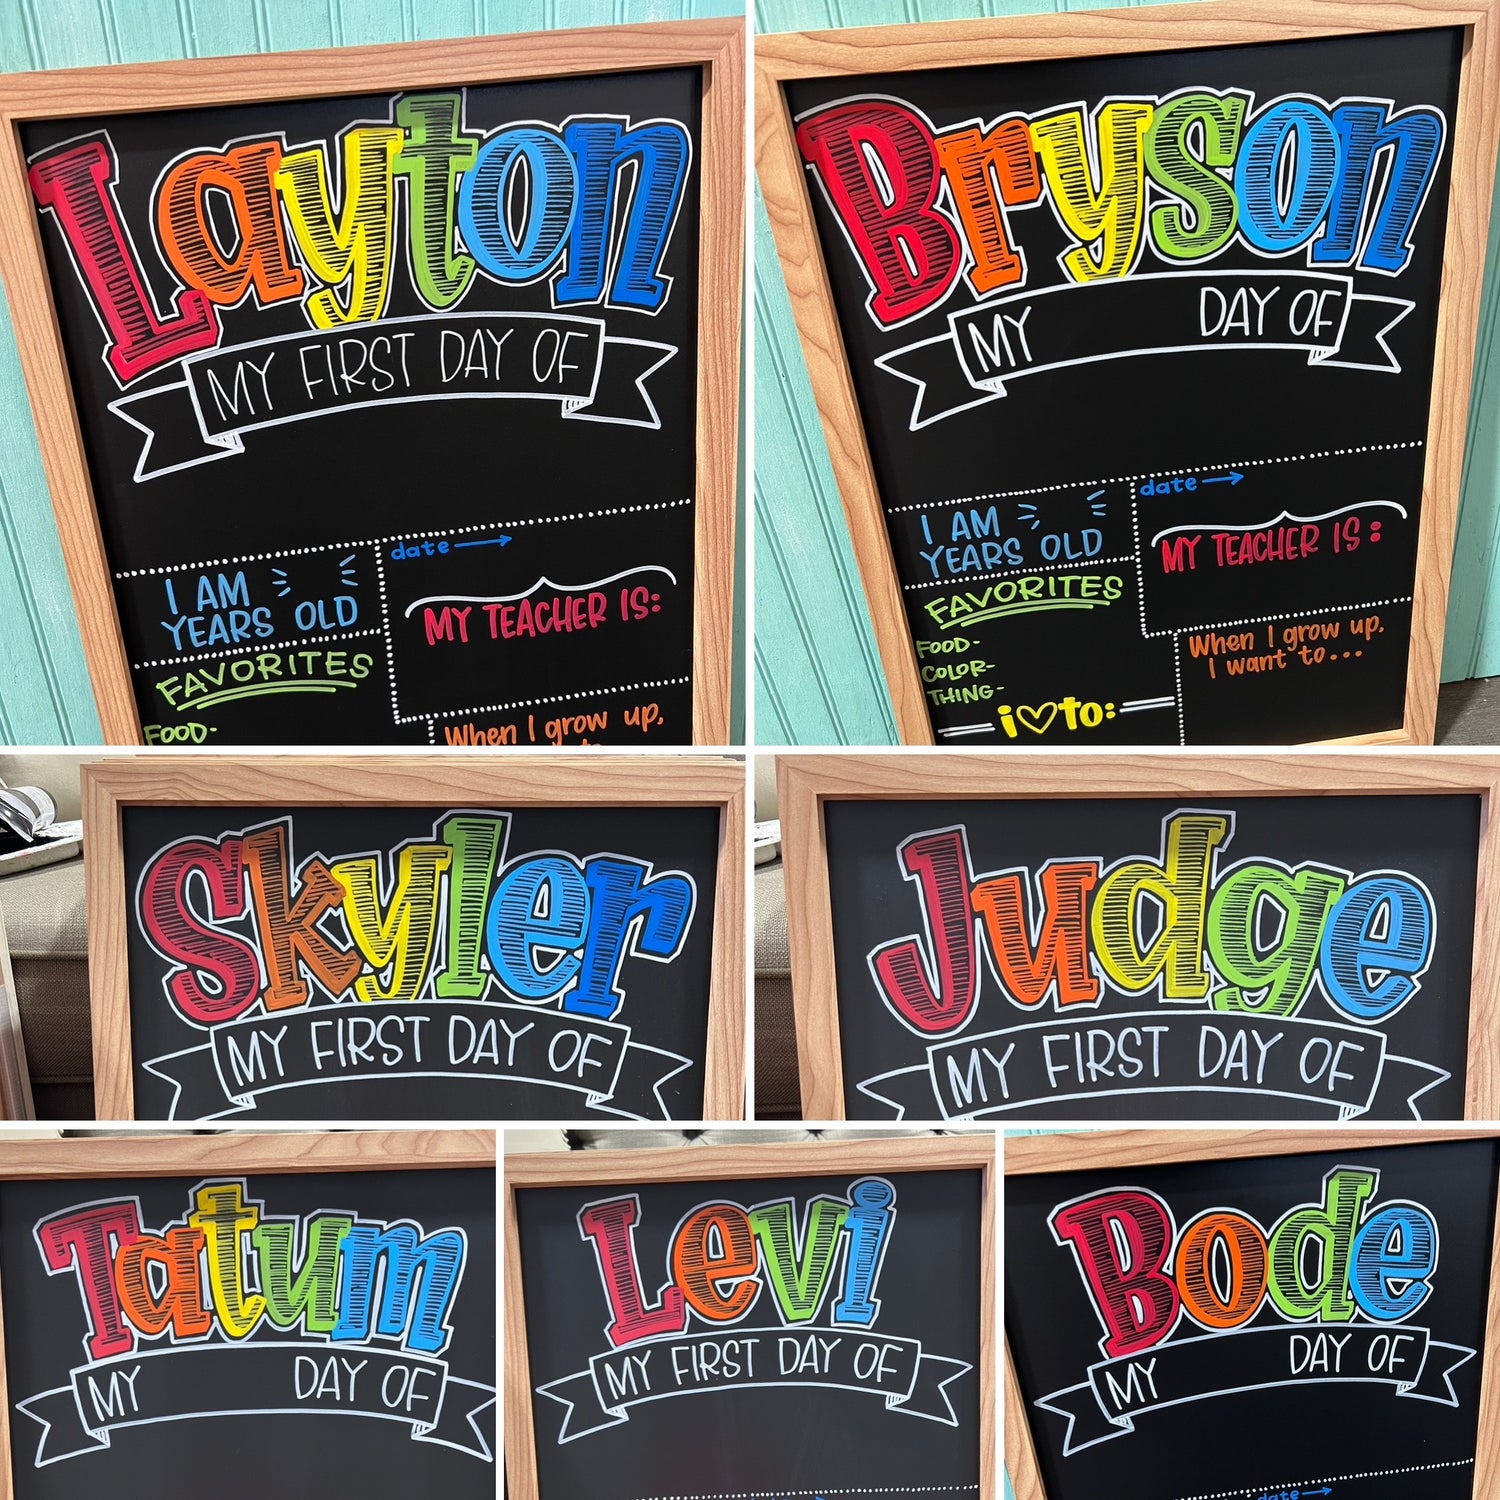 Layton
MY FIRST DAY OF
date →
I AM
YEARS OLD
MY TEACHER IS:
FAVORITES
FOOD-
When I grow up,
Bryson
MY DAY OF
date →
I AM
YEARS OLD
MY TEACHER IS:
FAVORITES
FOOD-
COLOR-
THING-
i♡to:
When I grow up,
I want to...
Skyler
MY FIRST DAY OF
Judge
MY FIRST DAY OF
Tatum
MY DAY OF
Levi
MY FIRST DAY OF
Bode
MY DAY OF
date →